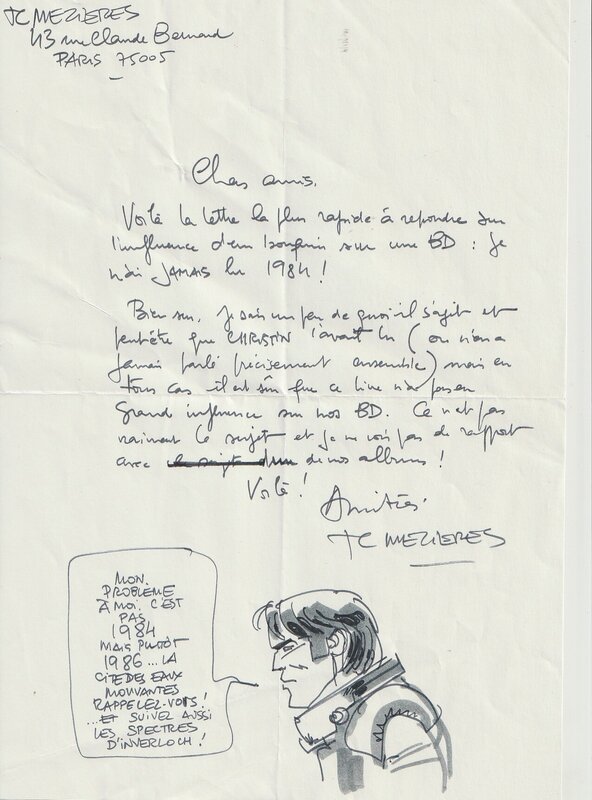 JC MEZIERES
43 rue Claude Bernard
PARIS 75005
Chers amis,
Voilà la lettre la plus rapide à répondre sur
l'influence d'un bouquin sur une BD : je
n'ai JAMAIS lu 1984 !
Bien sur, je sais un peu de quoi il s'agit et
peut-être que CHRISTIN l'avait lu (on n'en a
jamais parlé précisement ensemble) mais en
tous cas il est sûr que ce livre n'a pas eu
grand influence sur nos BD. Ce n'est pas
vraiment le sujet et je ne vois pas de rapport
avec de nos albums !
Voilà !
Amitiés
JC MEZIERES
MON
PROBLEME
A MOI, C'EST
PAS
1984
MAIS PLUTÔT
1986... LA
CITE DES EAUX
MOUVANTES
RAPPELEZ-VOUS !
...ET SUIVEZ AUSSI
LES SPECTRES
D'INVERLOCH !